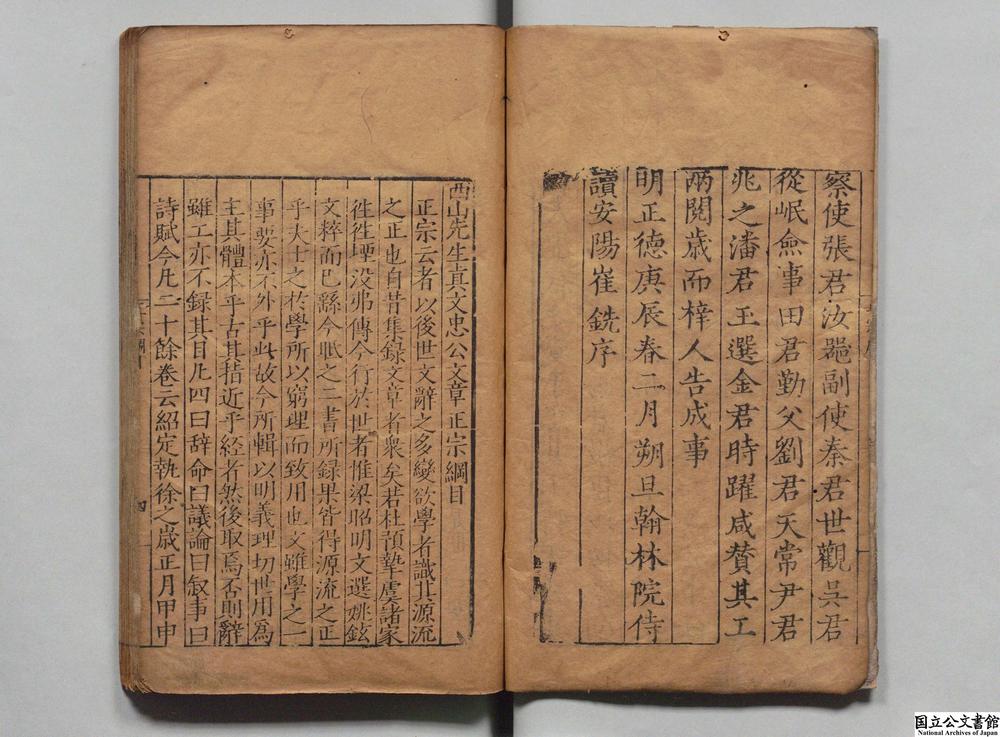 察使張君汝䂓副使秦君世觀吴君
從岷僉事田君勤父劉君天常尹君
兆之潘君王選金君時躍咸賛其工
兩閱歳而梓人告成事
明正德庚辰春二月朔旦翰林院侍
讀安陽崔銑序
西山先生真文忠公文章正宗綱目
正宗云者以後世文辭之多變欲學者識其源流
之正也自昔集録文章者衆矣若杜預摯虞諸家
徃徃堙没弗傳今行於世者惟梁昭明文選姚鉉
文粹而已繇今眂之二書所録果皆得源流之正
乎夫士之於學所以窮理而致用也文雖學之一
事要亦不外乎此故今所輯以明義理切世用為
主其體本乎古其指近乎経者然後取焉否則辭
雖工亦不録其目凡四曰辞命曰議論曰叙事曰
詩賦今凡二十餘卷云紹定執徐之歳正月甲申
四
国立公文書館
National Archives of Japan